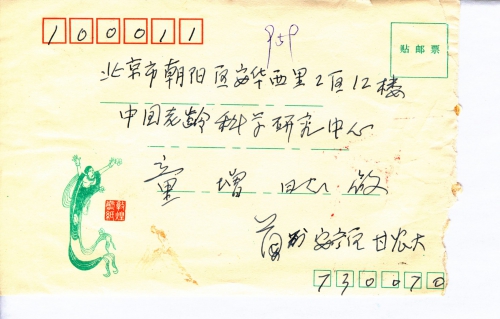 100011
贴邮票
北京市朝阳区安华西里2区12楼
中国老龄科学研究中心
童增 同志 收
兰州安宁区甘农大
敦煌
730070